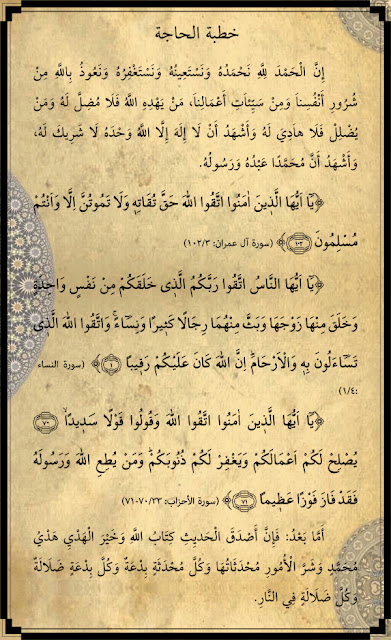 خطبة الحاجة
إِنَّ الْحَمْدَ لِلَّهِ نَحْمَدُهُ وَنَسْتَعِينُهُ وَنَسْتَغْفِرُهُ وَنَعُوذُ بِاللَّهِ مِنْ
شُرُورِ أَنْفُسِنَا وَمِنْ سَيِّئَاتِ أَعْمَالِنَا، مَنْ يَهْدِهِ اللَّهُ فَلَا مُضِلَّ لَهُ وَمَنْ
يُضْلِلْ فَلَا هَادِيَ لَهُ وَأَشْهَدُ أَنْ لَا إِلَهَ إِلَّا اللَّهُ وَحْدَهُ لَا شَرِيكَ لَهُ،
وَأَشْهَدُ أَنَّ مُحَمَّدًا عَبْدُهُ وَرَسُولُهُ.
﴿يَٓا اَيُّهَا الَّذ۪ينَ اٰمَنُوا اتَّقُوا اللّٰهَ حَقَّ تُقَاتِه۪ وَلَا تَمُوتُنَّ اِلَّا وَاَنْتُمْ
مُسْلِمُونَ ﴿١٠٢﴾ (سورة آل عمران: ١٠٢/٣)
﴿يَٓا اَيُّهَا النَّاسُ اتَّقُوا رَبَّكُمُ الَّذ۪ي خَلَقَكُمْ مِنْ نَفْسٍ وَاحِدَةٍ
وَخَلَقَ مِنْهَا زَوْجَهَا وَبَثَّ مِنْهُمَا رِجَالًا كَث۪يرًا وَنِسَٓاءًۚ وَاتَّقُوا اللّٰهَ الَّذ۪ي
تَسَٓاءَلُونَ بِه۪ وَالْاَرْحَامَۜ اِنَّ اللّٰهَ كَانَ عَلَيْكُمْ رَق۪يبًا ﴿١﴾ (سورة النساء
:١/٤)
﴿يَٓا اَيُّهَا الَّذ۪ينَ اٰمَنُوا اتَّقُوا اللّٰهَ وَقُولُوا قَوْلًا سَد۪يدًاۙ ﴿٧٠﴾
يُصْلِحْ لَكُمْ اَعْمَالَكُمْ وَيَغْفِرْ لَكُمْ ذُنُوبَكُمْۜ وَمَنْ يُطِعِ اللّٰهَ وَرَسُولَهُ
فَقَدْ فَازَ فَوْزًا عَظ۪يمًا ﴿٧١﴾ (سورة الأحزاب: ٧٠/٣٣-٧١)
أَمَّا بَعْدُ: فَإِنَّ أَصْدَقَ الْحَدِيثِ كِتَابُ اللَّهِ وَخَيْرَ الْهَدْيِ هَدْيُ
مُحَمَّدٍ وَشَرَّ الْأُمُورِ مُحْدَثَاتُهَا وَكُلَّ مُحْدَثَةٍ بِدْعَةٌ وَكُلَّ بِدْعَةٍ ضَلَالَةٌ
وَكُلَّ ضَلَالَةٍ فِي النَّارِ.